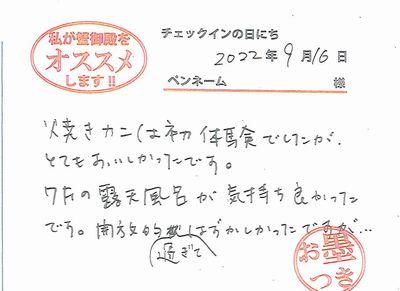 私が蟹御殿を
オススメ
します!!
チェックインの日にち
2022年9月16日
ペンネーム 様
焼きカニは初体験でしたが、
とてもおいしかったです。
7Fの露天風呂が気持ち良かった
です。開放的過ぎてはずかしかったですが…
お墨
つき